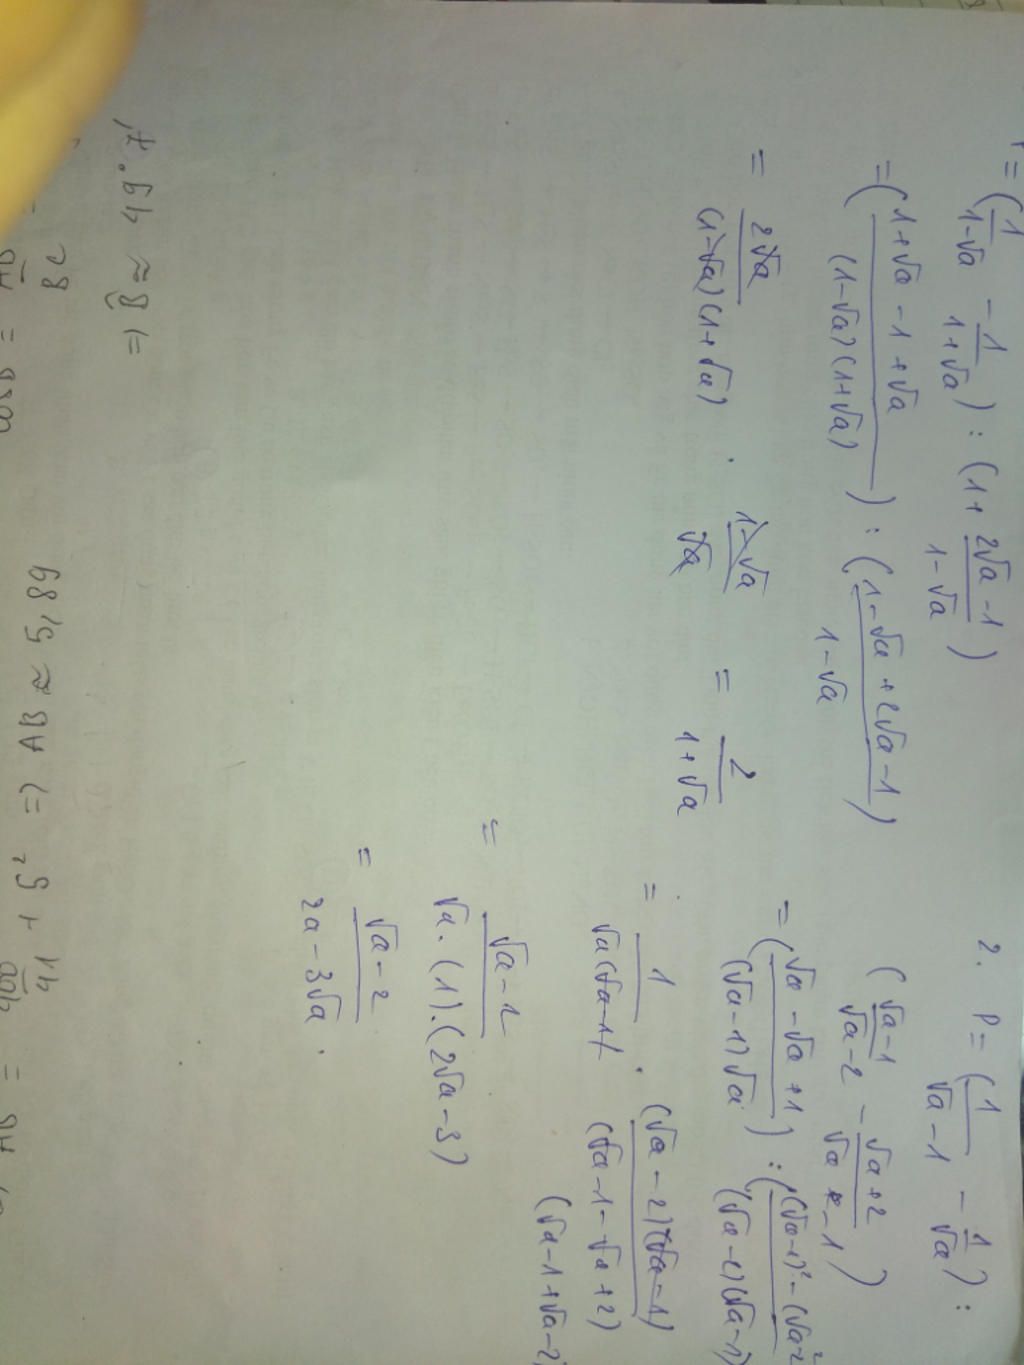 P = (1/(1-√a) - 1/(1+√a)) : (1 + (2√a-1)/(1-√a))
= ((1+√a-1+√a)/((1-√a)(1+√a))) : ((1-√a+2√a-1)/(1-√a))
= 2√a/((1-√a)(1+√a)) . (1-√a)/√a = 2/(1+√a)
2. P = (1/(√a-1) - 1/√a) :
((√a-1)/(√a-2) - (√a+2)/(√a-1))
= ((√a-√a+1)/((√a-1)√a)) : (((√a-1)²-(√a-2
= 1/(√a(√a-1)) . ((√a-2)(√a-1))/((√a-1-√a+2)
(√a-1+√a-2)
= (√a-2)/(√a.(1).(2√a-3))
= (√a-2)/(2a-3√a) .
=) B̂ ≈ 49°7'
BC
+ 5² => AB ≈ 5,89